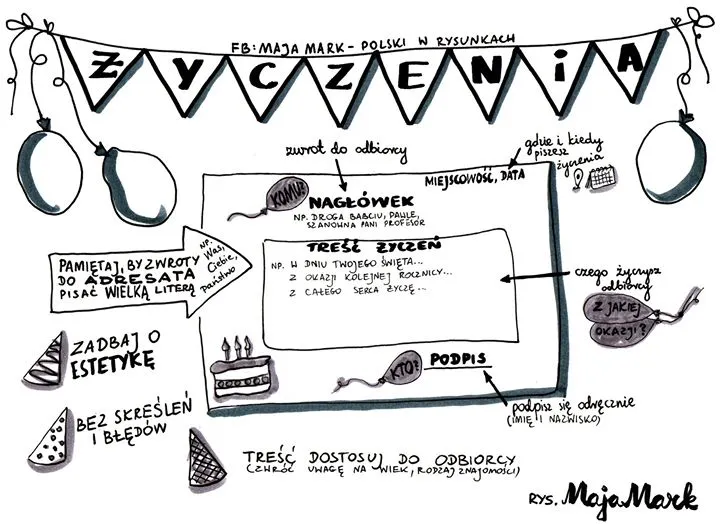 FB: MAJA MARK - POLSKI W RYSUNKACH
ŻYCZENIA
zwrot do odbiorcy
gdzie i kiedy
piszesz
życzenia
MIEJSCOWOŚĆ, DATA
KOMU?
NAGŁÓWEK
NP. DROGA BABCIU, PAWLE,
SZANOWNA PANI PROFESOR
PAMIĘTAJ, BY ZWROTY
DO ADRESATA
PISAĆ WIELKĄ LITERĄ
NP.
Was,
Ciebie,
Państwo
TREŚĆ ŻYCZEŃ
NP. W DNIU TWOJEGO ŚWIĘTA...
Z OKAZJI KOLEJNEJ ROCZNICY...
Z CAŁEGO SERCA ŻYCZĘ...
czego życzysz
odbiorcy
Z JAKIEJ
OKAZJI?
ZADBAJ O
ESTETYKĘ
KTO?
PODPIS
podpisz się odręcznie
(IMIĘ I NAZWISKO)
BEZ SKREŚLEŃ
I BŁĘDÓW
TREŚĆ DOSTOSUJ DO ODBIORCY
(ZWRÓĆ UWAGĘ NA WIEK, RODZAJ ZNAJOMOŚCI)
RYS. Maja Mark